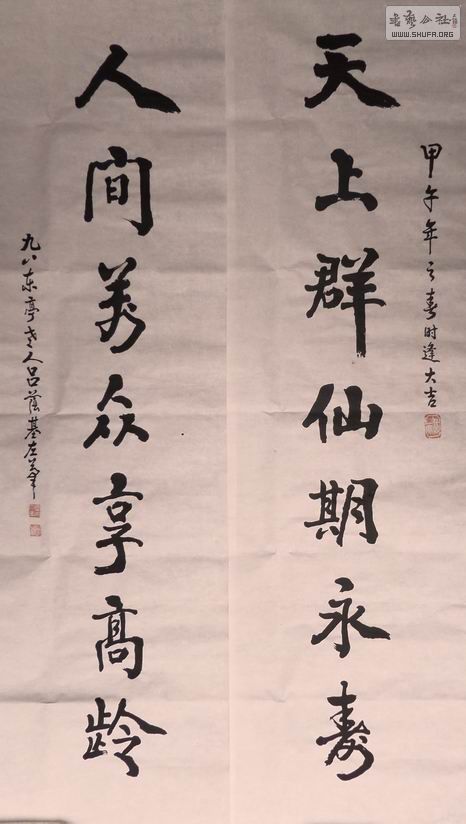 甲午年之春时逢大吉
天上群仙期永寿
人间萬众享高龄
九八东亭老人吕荫基左笔
書藝公社
WWW.SHUFA.ORG